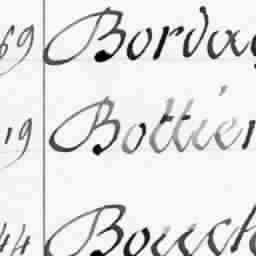 69 Borda
19 Bottier
44 Bouch